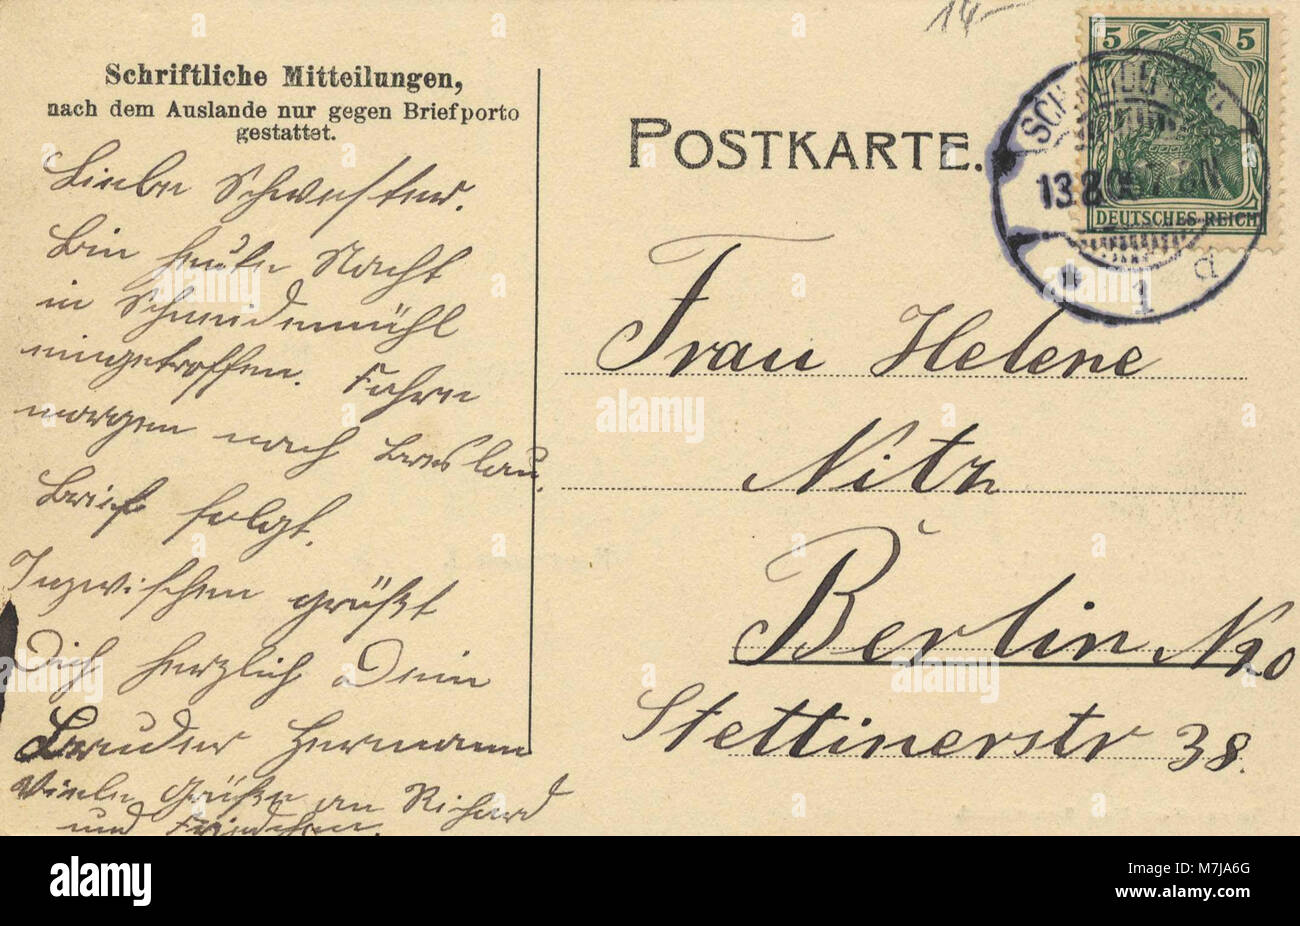 14-
Schriftliche Mitteilungen,
nach dem Auslande nur gegen Briefporto
gestattet.
POSTKARTE.
5 5
DEUTSCHES REICH
13.8.
1
d
Liebe Schwester.
Bin heute Nacht
in Schneidemühl
eingetroffen. Fahre
morgen nach Breslau.
Brief folgt.
Inzwischen grüßt
Dich herzlich Dein
Bruder Hermann
Viele Grüße an Richard
und Friedchen.
Frau Helene
Nitz
Berlin N20
Stettinerstr 38.
alamy
alamy
alamy
a
a
a
a
alamy
Image ID: M7JA6G
www.alamy.com